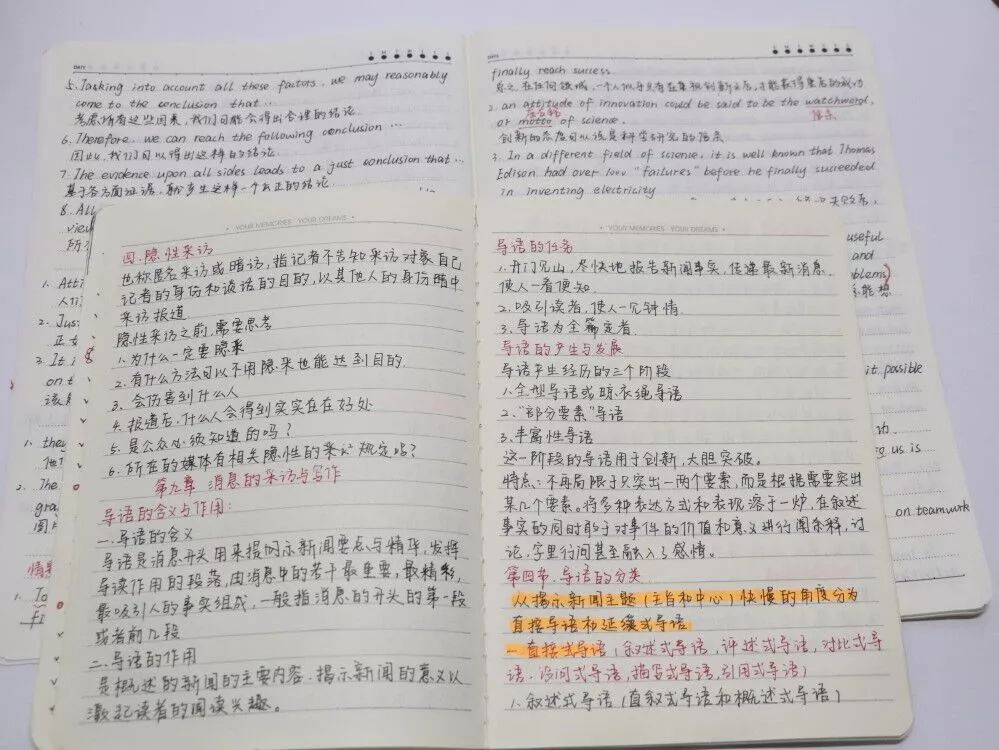 DATE
5. Tasking into account all these factors, we may reasonably
come to the conclusion that ...
考虑所有这些因素,我们可能会得出合理的结论.
6. Therefore, we can reach the following conclusion ...
因此,我们可以得出这样的结论
7. The evidence upon all sides leads to a just conclusion that ...
基于各方面证据,
这样一个公正的结论
8. All
view
1. Atti
人们
2. Jus
3. It i
on t
该
1. they
2. The
gra
图
1. To
DATE
finally reach success
总之,在任何领域,一个人似乎只有在
创新之后,才能获得
的成功
2. an attitude of innovation could be said to be the watchword,
or motto of science.
座右铭
创新的态度可以说是科学研究的
3. In a different field of science, it is well known that Thomas
Edison had over 1000 "failures" before he finally succeeded
in inventing electricity
useful
and
blems)
能想
it possible
g us is
on teamwork
YOUR MEMORIES YOUR DREAMS
四.隐性采访
也称匿名采访或暗访,指记者不告知采访对象自己
记者的身份和谈话的目的,以其他人的身份暗中
采访报道
隐性采访之前,需要思考
1.为什么一定要隐采
2.有什么方法可以不用隐采也能达到目的.
3.会伤害到什么人
4.报道后,什么人会得到实实在在好处
5.是公众必须知道的吗?
6.所在的媒体有相关隐性的采访规定吗?
第九章 消息的采访与写作
导语的含义与作用:
一.导语的含义
导语是消息开头用来提
示新闻要点与精华,发挥
导读作用的段落,由消息中的若干最重要,最精彩,
最吸引人的事实组成,一般指消息的开头的第一段
或者前几段
二.导语的作用
是概述的新闻的主要内容.揭示新闻的意义以
激起读者的阅读兴趣。
YOUR MEMORIES YOUR DREAMS
导语的任务
1.开门见山,尽快地报告新闻事实,传递最新消息,
使人一看便知.
2.吸引读者,使人一见钟情.
3.导语为全篇定音.
导语的产生与发展
导语产生经历的三个阶段
1.全型导语或晾衣绳导语
2."部分要素"导语
3.丰富性导语
这一阶段的导语用于创新,大胆突破。
特点:不再局限于只突出一两个要素,而是根据需要突出
某几个要素。将多种表达方式和表现溶于一炉,在叙述
事实的同时敢于对事件的价值和意义进行阐条释,讨
论,字里行间甚至融入了感情。
第四节.导语的分类
从揭示新闻主题(主旨和中心)快慢的角度分为
直接导语和延缓式导语
一.直接式导语(叙述式导语,评述式导语,对比式导
语.设问式导语,描写式导语,引用式导语)
1.叙述式导语(直叙式导语和概述式导语)